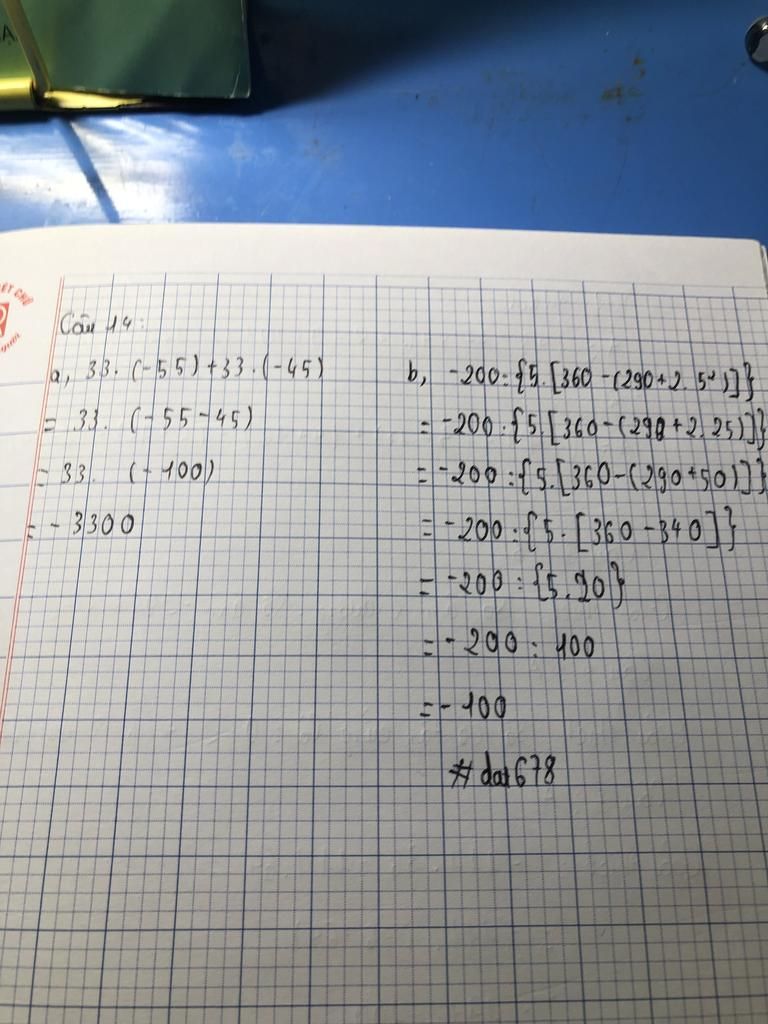 Câu 14:
a, 33.(-55)+33.(-45)
= 33. (-55-45)
= 33. (-100)
= -3300
b, -200:{5.[360-(290+2.5²)]}
= -200:{5.[360-(290+2.25)]}
= -200:{5.[360-(290+50)]}
= -200:{5.[360-340]}
= -200:{5.20}
= -200: 100
= -100
#dat678